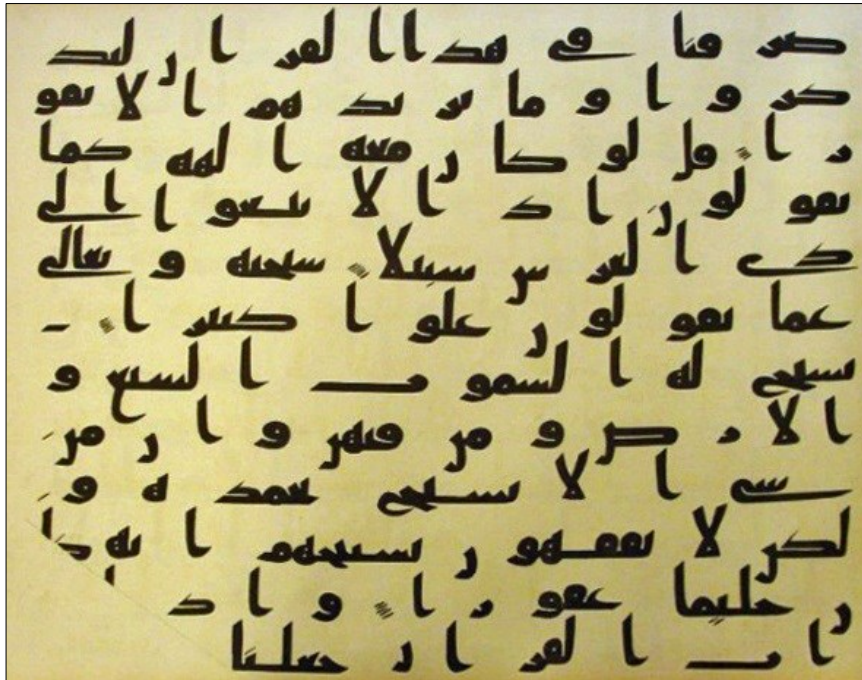 صرفنا في هذا القران ليذ
كروا وما يزيدهم الا نفو
را قل لو كان معه الهه كما
يقولون اذا لابتغوا الى
ذي العرش سبيلا سبحنه وتعلى
عما يقولون علوا كبيرا
تسبح له السموت السبع و
الارض ومن فيهن وان من
شي الا يسبح بحمده و
لكن لا تفقهون تسبيحهم انه كا
ن حليما غفورا واذا
ات القران جعلنا